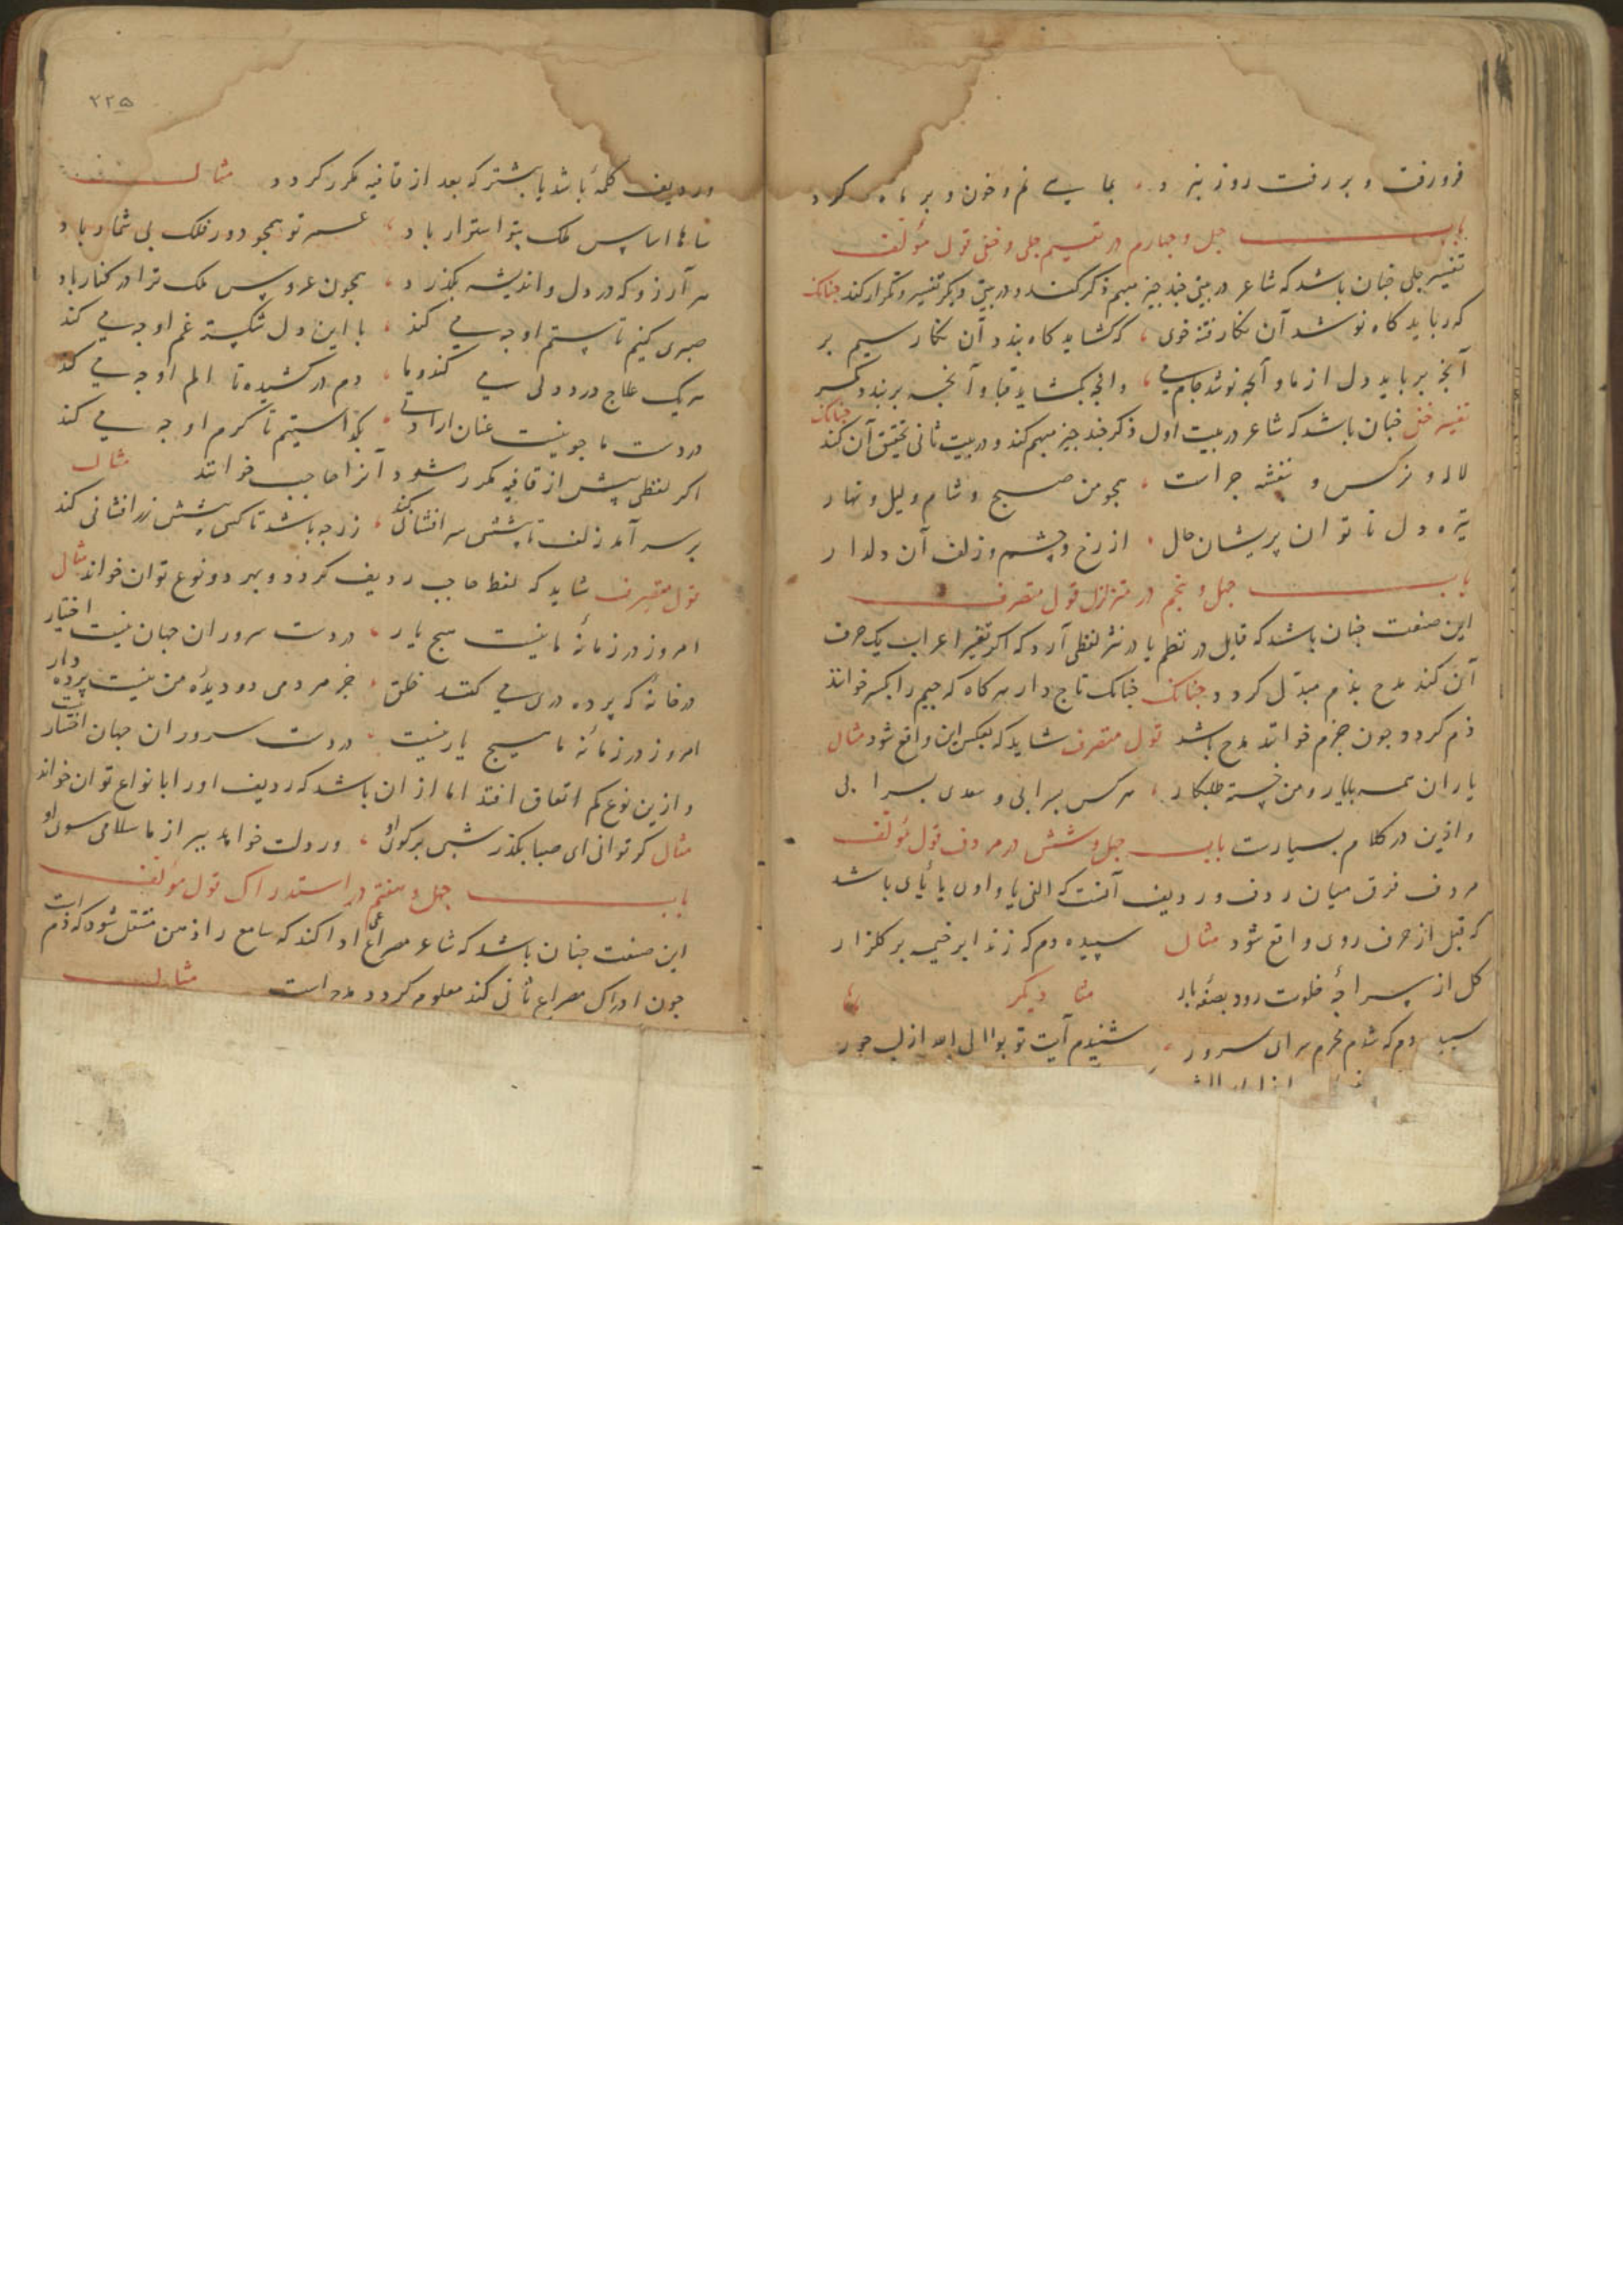 فرورفت و بررفت روز نبرد بماهی نم و خون و بر ماه کرد
باب جهل و جهارم در تفسیر جلی و خفی قول مؤلف
تفسیر جلی جنان باشد که شاعر در بیتی جند جیز مبهم ذکر کند و در بیتی دیکر تفسیر و تکرار کند جنانک
که رباید کاه نوشد آن نکار فتنه جوی که کشاید کاه بندد آن نکار سیم بر
آنج برباید دل از ما و آنج نوشد جام می و انج بکشاید قبا و آنجه بربندد کمر
تفسیر خفی جنان باشد که شاعر در بیت اول ذکر جند جیز مبهم کند و در بیت ثانی تحقیق آن کند جنانک
لاله و نرکس و بنفشه جراست همجو من صبح و شام و لیل و نهار
تیره دل ناتوان پریشان حال از رخ و چشم و زلف آن دلدار
باب جهل و بنجم در متزلزل قول متصرف
این صنعت جنان باشد که قایل در نظم یا در نثر لفظی آرد که اکر تغیر اعراب یک حرف
آن کند مدح بذم مبدل کردد جنانک جنانک تاج دار هرکاه که جیم را بکسر خوانند
ذم کردد جون جزم خوانند مدح باشد قول متصرف شاید که بعکس این واقع شود مثال
یاران همه با یار و من خسته طلبکار هرکس بسر آبی و سعدی بسرابی
و ازین در کلام بسیارست باب جهل و شش در مردف قول مؤلف
مردف فرق میان ردف و ردیف آنست که الفی یا واوی یا یائی باشد
که قبل از حرف روی واقع شود مثال سپیده دم که زند ابر خیمه بر کلزار
کل از سراجه خلوت رود بصفه بار مثا دیکر
سپیده دم که شدم محرم سرای سرور شنیدم آیت توبوا الی الله از لب حور
۲۲۵
وردیف کلمه باشد یا بیشتر که بعد از قافیه مکرر کردد مثال
شاها اساس ملک بتو استوار باد عمر تو همجو دور فلک بی شمار باد
هر آرزو که در دل و اندیشه بکذرد همجون عروس ملک ترا در کنار باد
صبری کنیم تا ستم او جه می کند با این دل شکسته غم او جه می کند
هریک علاج درد دلی می کند و ما دم در کشیده تا الم او جه می کند
در دست ما جو نیست عنان ارادتی بکذاشتیم تا کرم او جه می کند
اکر لفظی پیش از قافیه مکرر شود آنرا حاجب خوانند مثال
بر سر آمد زلف تا پیشش سر افشانی کند زر جه باشد تا کسی پیشش زر افشانی کند
قول متصرف شاید که لفظ حاجب ردیف کردد و بهر دو نوع توان خواند مثال
امروز در زمانه ما نیست هیج یار در دست سروران جهان نیست اختیار
در خانه که پرده دری می کنند خلق جز مردمی دو دیده من نیست پرده دار
امروز در زمانه ما هیج یار نیست در دست سروران جهان اختیار نیست
و ازین نوع کم اتفاق افتد اما از ان باشد که ردیف او را بانواع توان خواند
مثال کر توانی ای صبا بکذر شبی بر کوی او ور دلت خواهد ببر از ما سلامی سوی او
باب جهل و هفتم در استدراک قول مؤلف
این صنعت جنان باشد که شاعر مصراعی ادا کند که سامع را ذهن منتقل شود که ذم است
جون ادراک مصراع ثانی کند معلوم کردد مدح است مثال